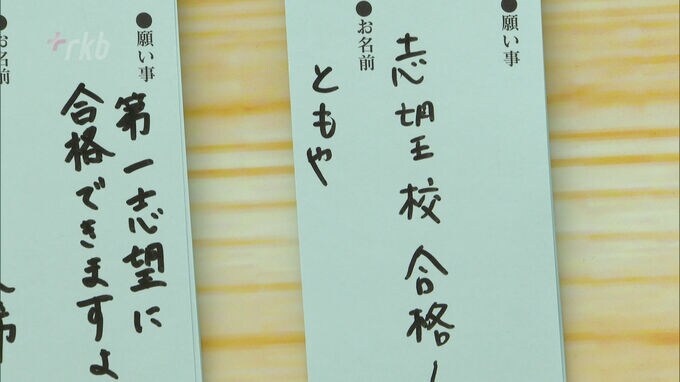 rkb
●願い事
志望校合格
●お名前
ともや
●願い事
第一志望に
合格できますよ
●お名前